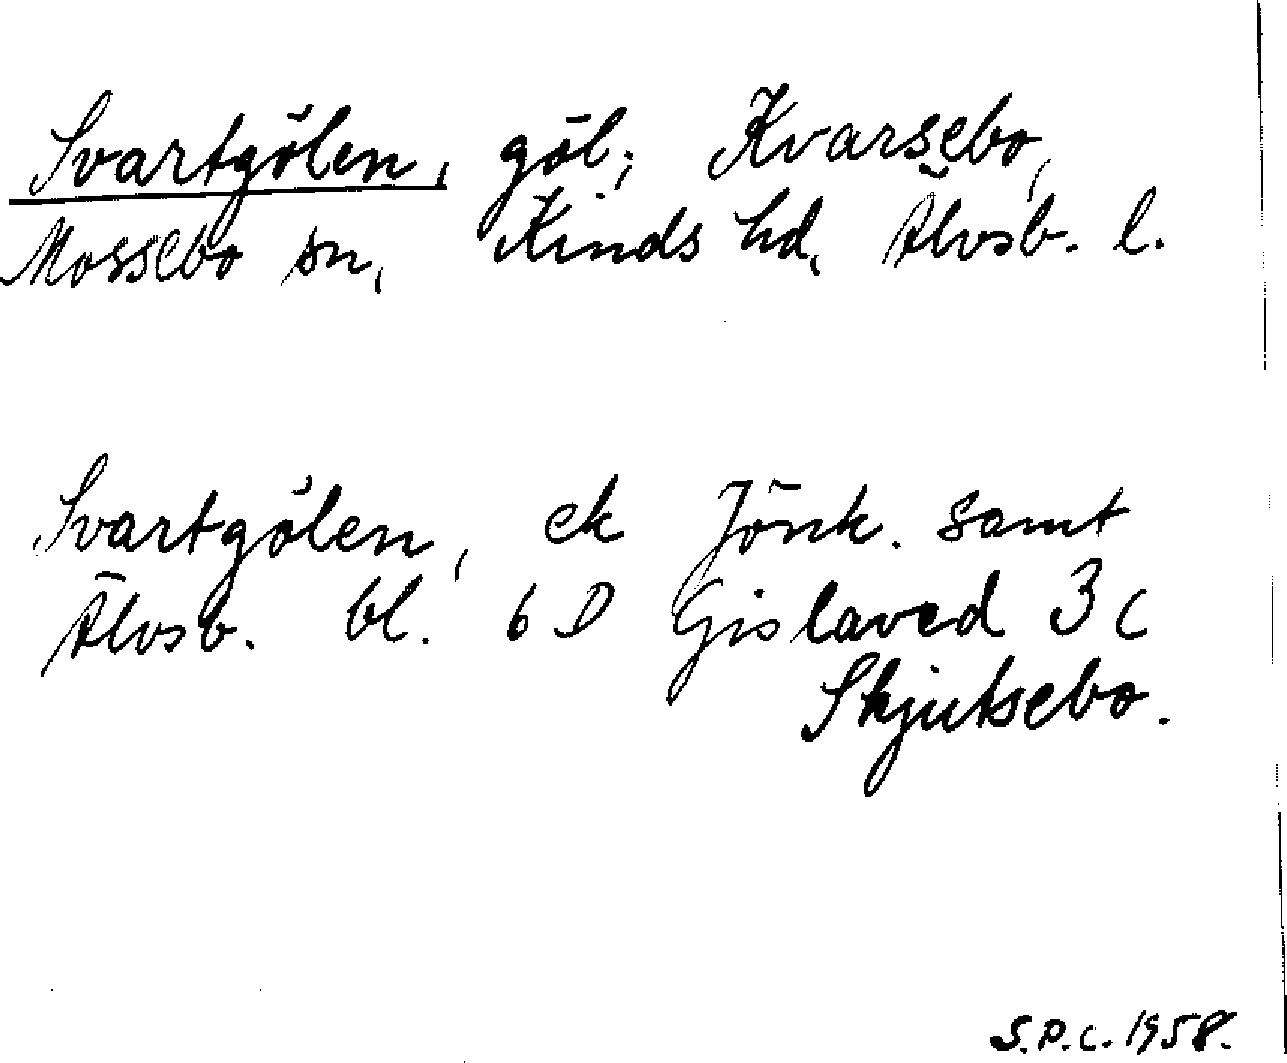 Svartgölen, göl; Kvarsebo,
Mossebo sn, Kinds hd, Älvsb. l.
Svartgölen, ek Jönk. samt
Älvsb. bl. 6 D Gislaved 3 c
Skjutsebo.
S.P.C. 1958.